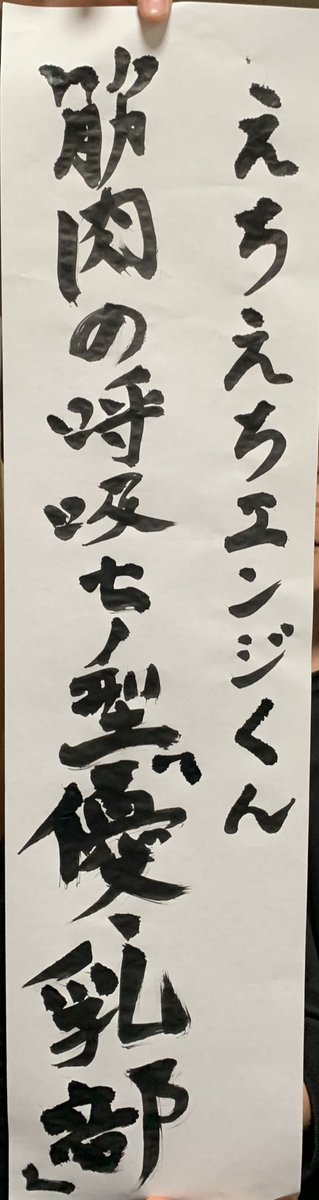 えちえちエンジくん
筋肉の呼吸七ノ型「優・乳部」